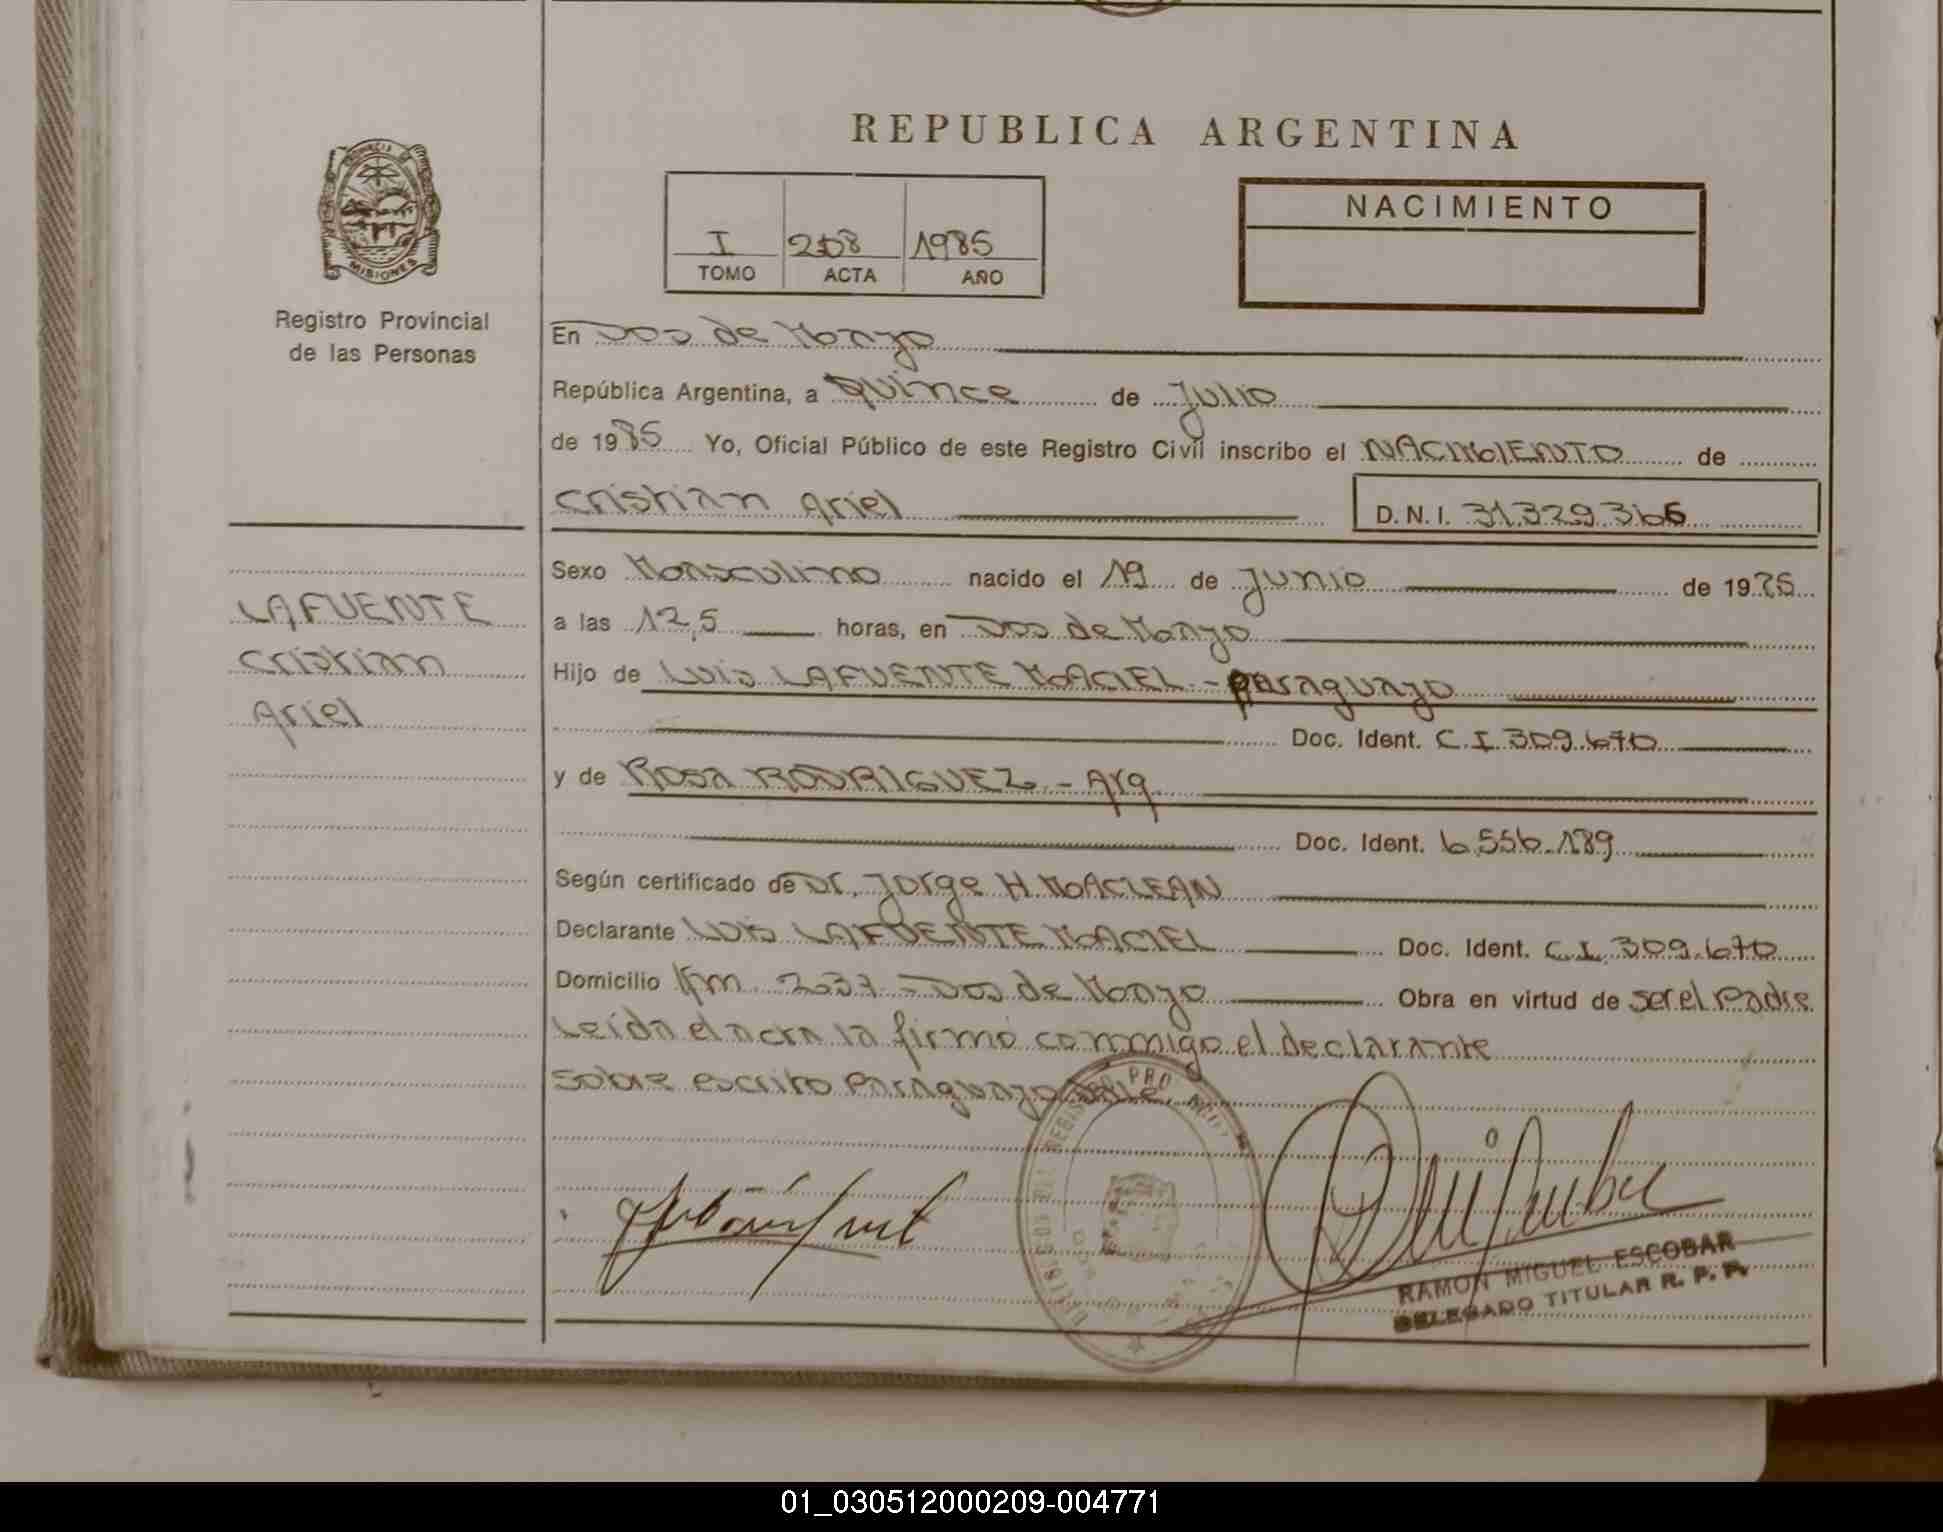 REPUBLICA ARGENTINA
PROVINCIA DE
MISIONES
Registro Provincial
de las Personas
I 208 1985
TOMO ACTA AÑO
NACIMIENTO
En Dos de Mayo
República Argentina, a Quince de Julio
de 1985 Yo, Oficial Público de este Registro Civil inscribo el NACIMIENTO de
Cristian Ariel D.N.I. 31.329.366
Sexo Masculino nacido el 19 de Junio de 1985
a las 12,5 horas, en Dos de Mayo
Hijo de Luis LAFUENTE MACIEL - paraguayo
Doc. Ident. C.I. 309.670
y de Rosa RODRIGUEZ - Arg.
Doc. Ident. 6.556.189
Según certificado de Dr. Jorge H. MACLEAN
Declarante Luis LAFUENTE MACIEL Doc. Ident. C.I. 309.670
Domicilio Km. 237 - Dos de Mayo Obra en virtud de ser el Padre
Leída el acta la firmó conmigo el declarante
sobre escrito Paraguayo Vale.
LAFUENTE
Cristian
Ariel
RAMON MIGUEL ESCOBAR
DELEGADO TITULAR R. P. P.
01_030512000209-004771